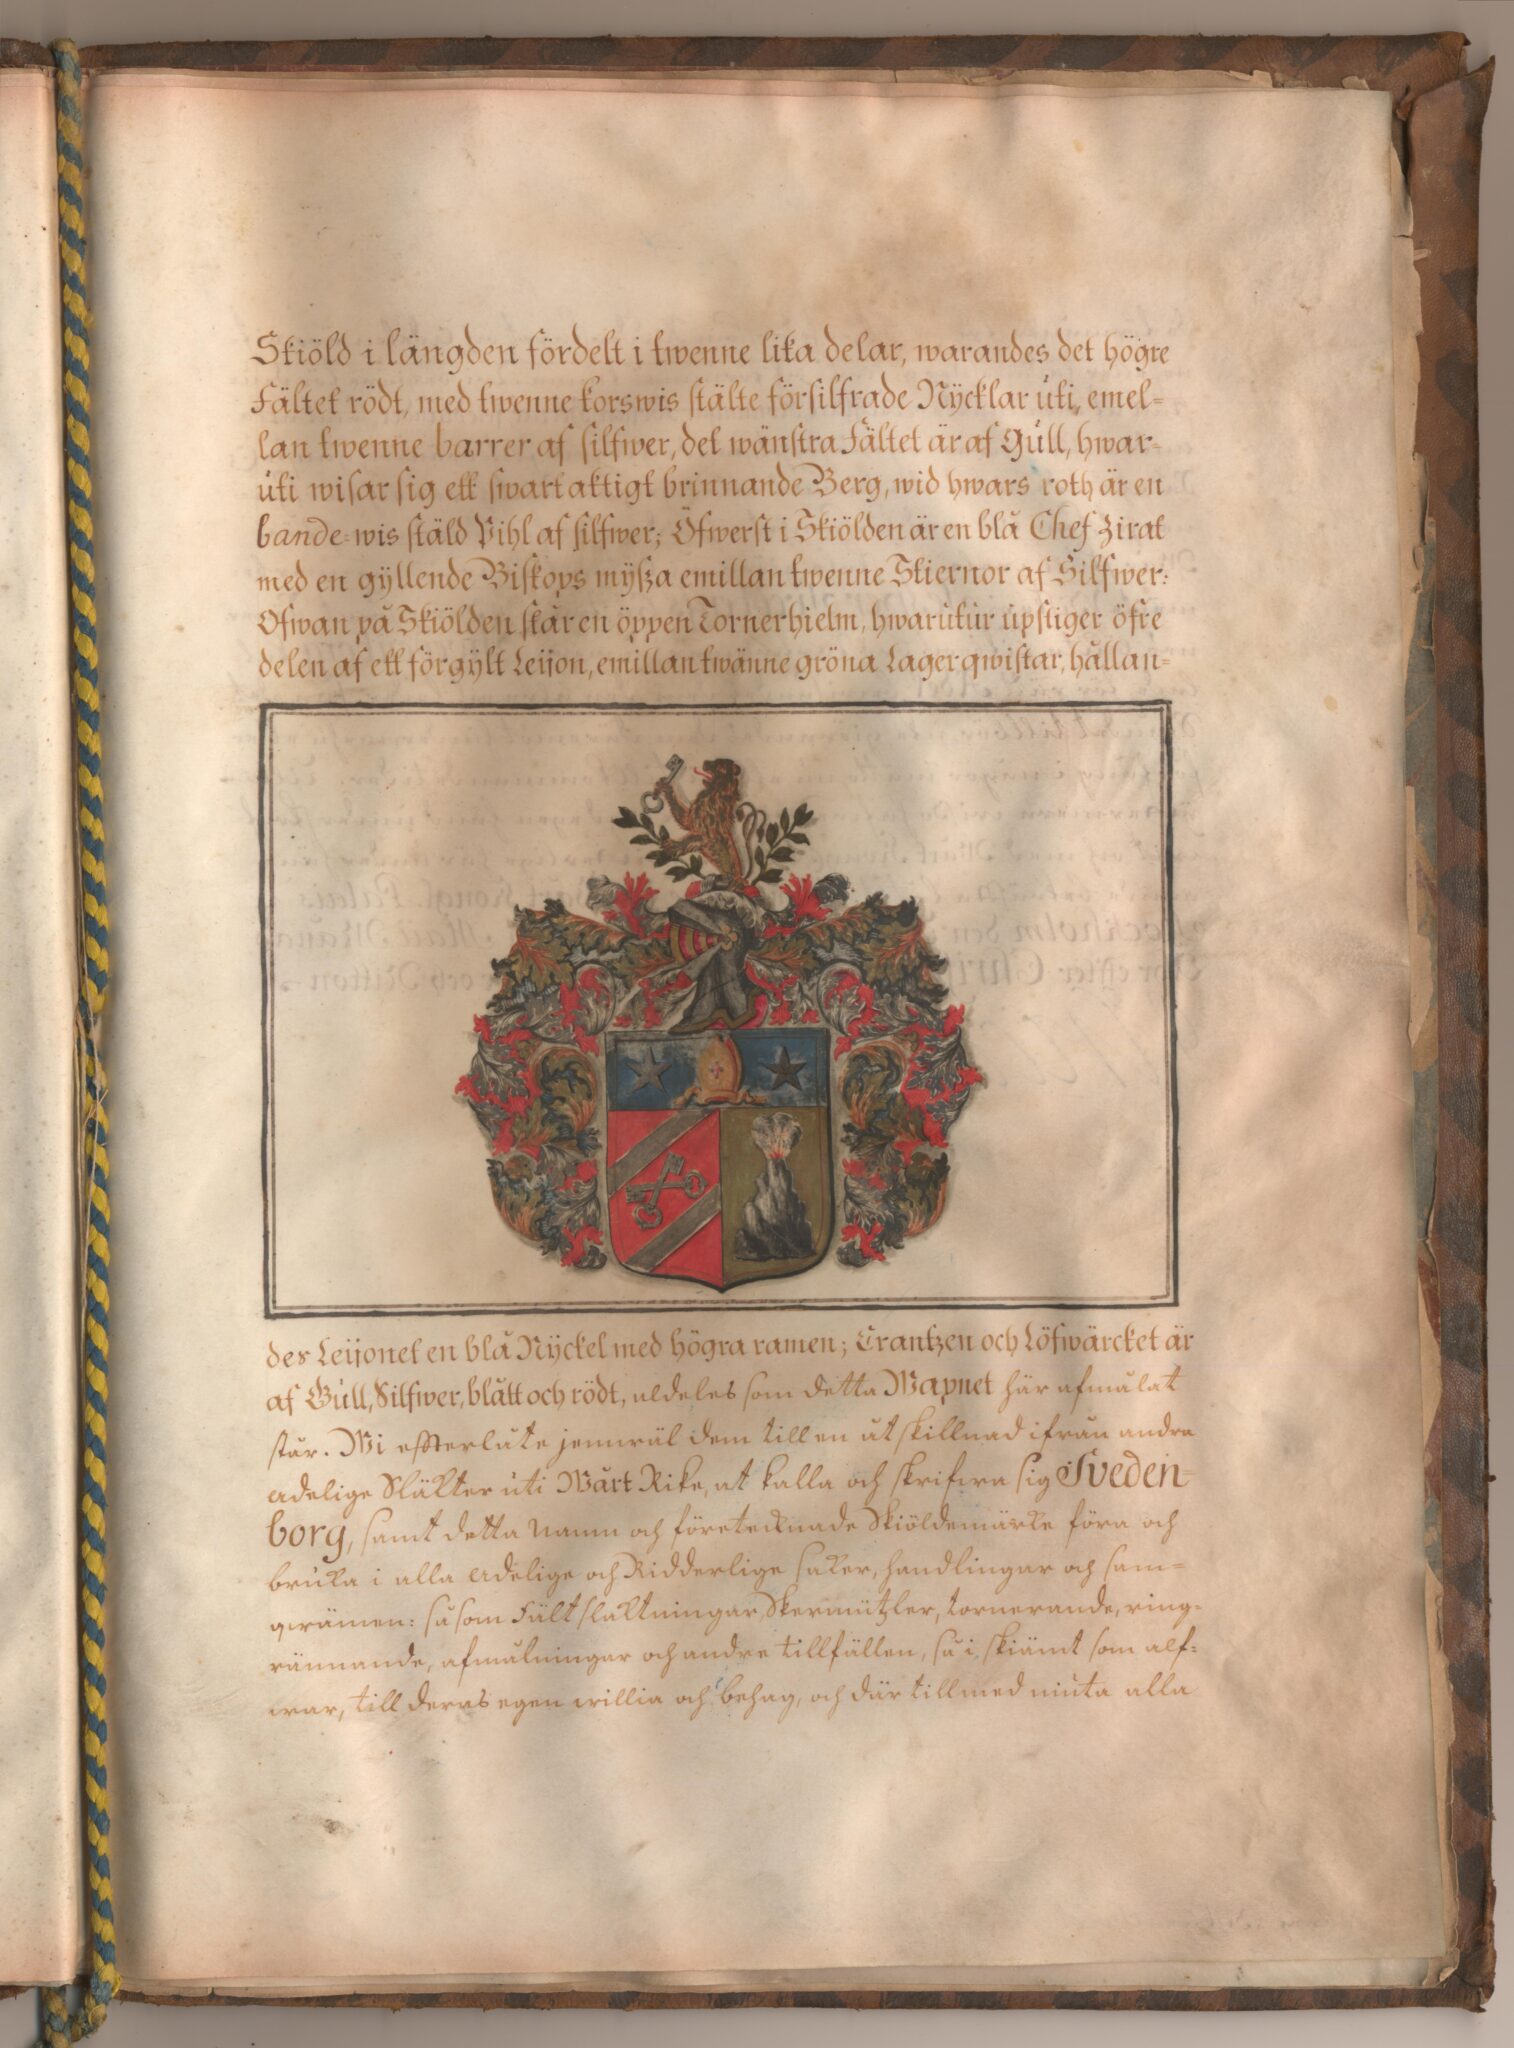 Skiöld i längden fördelt i twenne lika delar, warandes det högre
Fältet rödt, med twenne korswis stälte försilfrade Nÿcklar uti, emel=
lan twenne barrer af silfwer, det wänstra Fältet är af Gull, hwar=
uti wisar sig ett swartaktigt brinnande Berg, wid hwars roth är en
bande=wis stäld Pihl af silfwer; Öfwerst i Skiölden är en blå Chef zirat
med en gÿllende Biskops mÿssa emillan twenne Stiernor af Silfwer:
Ofwan på Skiölden står en öppen Tornerhielm, hwarutur upstiger öfre
delen af ett förgÿlt Leijon, emillan twänne gröna Lagerqwistar, hållan=
des Leijonet en blå Nÿckel med högra ramen; Crantzen och Löfwärcket är
af Gull, Silfwer, blått och rödt, aldeles som detta Wapnet här afmålat
står. Wi efterlåte jemwäl dem till en åtskillnad ifrån andra
adelige Släkter uti Wårt Rike, at kalla och skrifwa sig Sveden=
borg, samt detta Namn och företecknade Skiöldemärke föra och
bruka i alla adelige och Ridderlige saker, handlingar och sam=
qwämen: såsom Fältslaktningar, Skermützler, tornerande, ring=
rännande, afmålningar och andre tillfällen, så i skiämt som alf=
war, till deras egen willia och behag, och där till med niuta alla